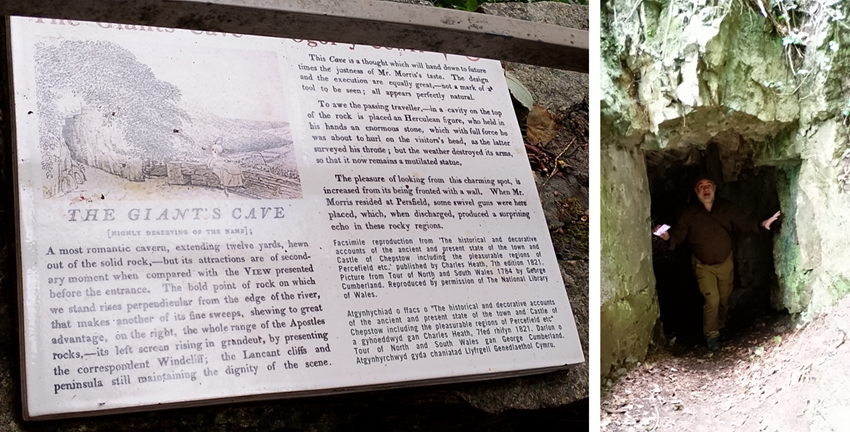 The Giants Cave
THE GIANT'S CAVE
[HIGHLY DESERVING OF THE NAME];
A most romantic cavern, extending twelve yards, hewn
out of the solid rock,—but its attractions are of second-
ary moment when compared with the VIEW presented
before the entrance. The bold point of rock on which
we stand rises perpendicular from the edge of the river,
that makes another of its fine sweeps, shewing to great
advantage, on the right, the whole range of the Apostles
rocks,—its left screen rising in grandeur, by presenting
the correspondent Windcliff; the Lancant cliffs and
peninsula still maintaining the dignity of the scene.
This Cave is a thought which will hand down to future
times the justness of Mr. Morris's taste. The design
and the execution are equally great,—not a mark of a
tool to be seen; all appears perfectly natural.
To awe the passing traveller,—in a cavity on the top
of the rock is placed an Herculean figure, who held in
his hands an enormous stone, which with full force he
was about to hurl on the visitor's head, as the latter
surveyed his throde; but the weather destroyed its arms,
so that it now remains a mutilated statue.
The pleasure of looking from this charming spot, is
increased from its being fronted with a wall. When Mr.
Morris resided at Persfield, some swivel guns were here
placed, which, when discharged, produced a surprising
echo in these rocky regions.
Facsimile reproduction from 'The historical and decorative
accounts of the ancient and present state of the town and
Castle of Chepstow including the pleasurable regions of
Percefield etc.' published by Charles Heath, 7th edition 1821.
Picture from Tour of North and South Wales 1784 by George
Cumberland. Reproduced by permission of The National Library
of Wales.
Atgynhyrchiad o ffacs o "The historical and decorative accounts
of the ancient and present state of the town and Castle of
Chepstow including the pleasurable regions of Percefield etc"
a gyhoeddwyd gan Charles Heath, 7fed rhifyn 1821. Darlun o
Tour of North and South Wales gan George Cumberland.
Atgynhyrchwyd gyda chaniatad Llyfrgell Genedlaethol Cymru.